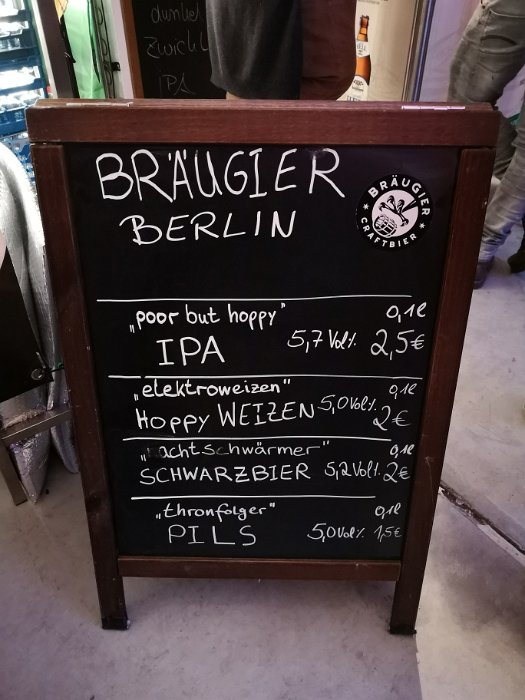 dunkel
Zwickl
IPA
BRÄUGIER
BERLIN
BRÄUGIER
CRAFTBIER
„poor but hoppy" 0,1l
IPA 5,7 Vol%. 2,5€
„elektroweizen" 0,1l
Hoppy WEIZEN 5,0 Vol%. 2€
„nachtschwärmer" 0,1l
SCHWARZBIER 5,2 Vol%. 2€
„thronfolger" 0,1l
PILS 5,0 Vol%. 1,5€